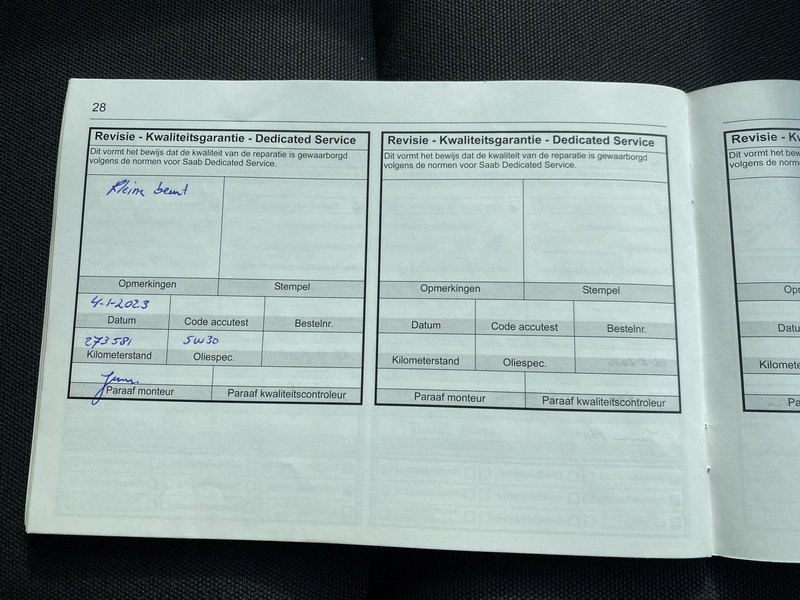 28
Revisie - Kwaliteitsgarantie - Dedicated Service
Dit vormt het bewijs dat de kwaliteit van de reparatie is gewaarborgd
volgens de normen voor Saab Dedicated Service.
Kleine beurt
Opmerkingen
Stempel
4-1-2023
Datum
Code accutest
Bestelnr.
273581
5W30
Kilometerstand
Oliespec.
Paraaf monteur
Paraaf kwaliteitscontroleur
Revisie - Kwaliteitsgarantie - Dedicated Service
Dit vormt het bewijs dat de kwaliteit van de reparatie is gewaarborgd
volgens de normen voor Saab Dedicated Service.
Opmerkingen
Stempel
Datum
Code accutest
Bestelnr.
Kilometerstand
Oliespec.
Paraaf monteur
Paraaf kwaliteitscontroleur
Revisie - K
Dit vormt het bew
volgens de norm